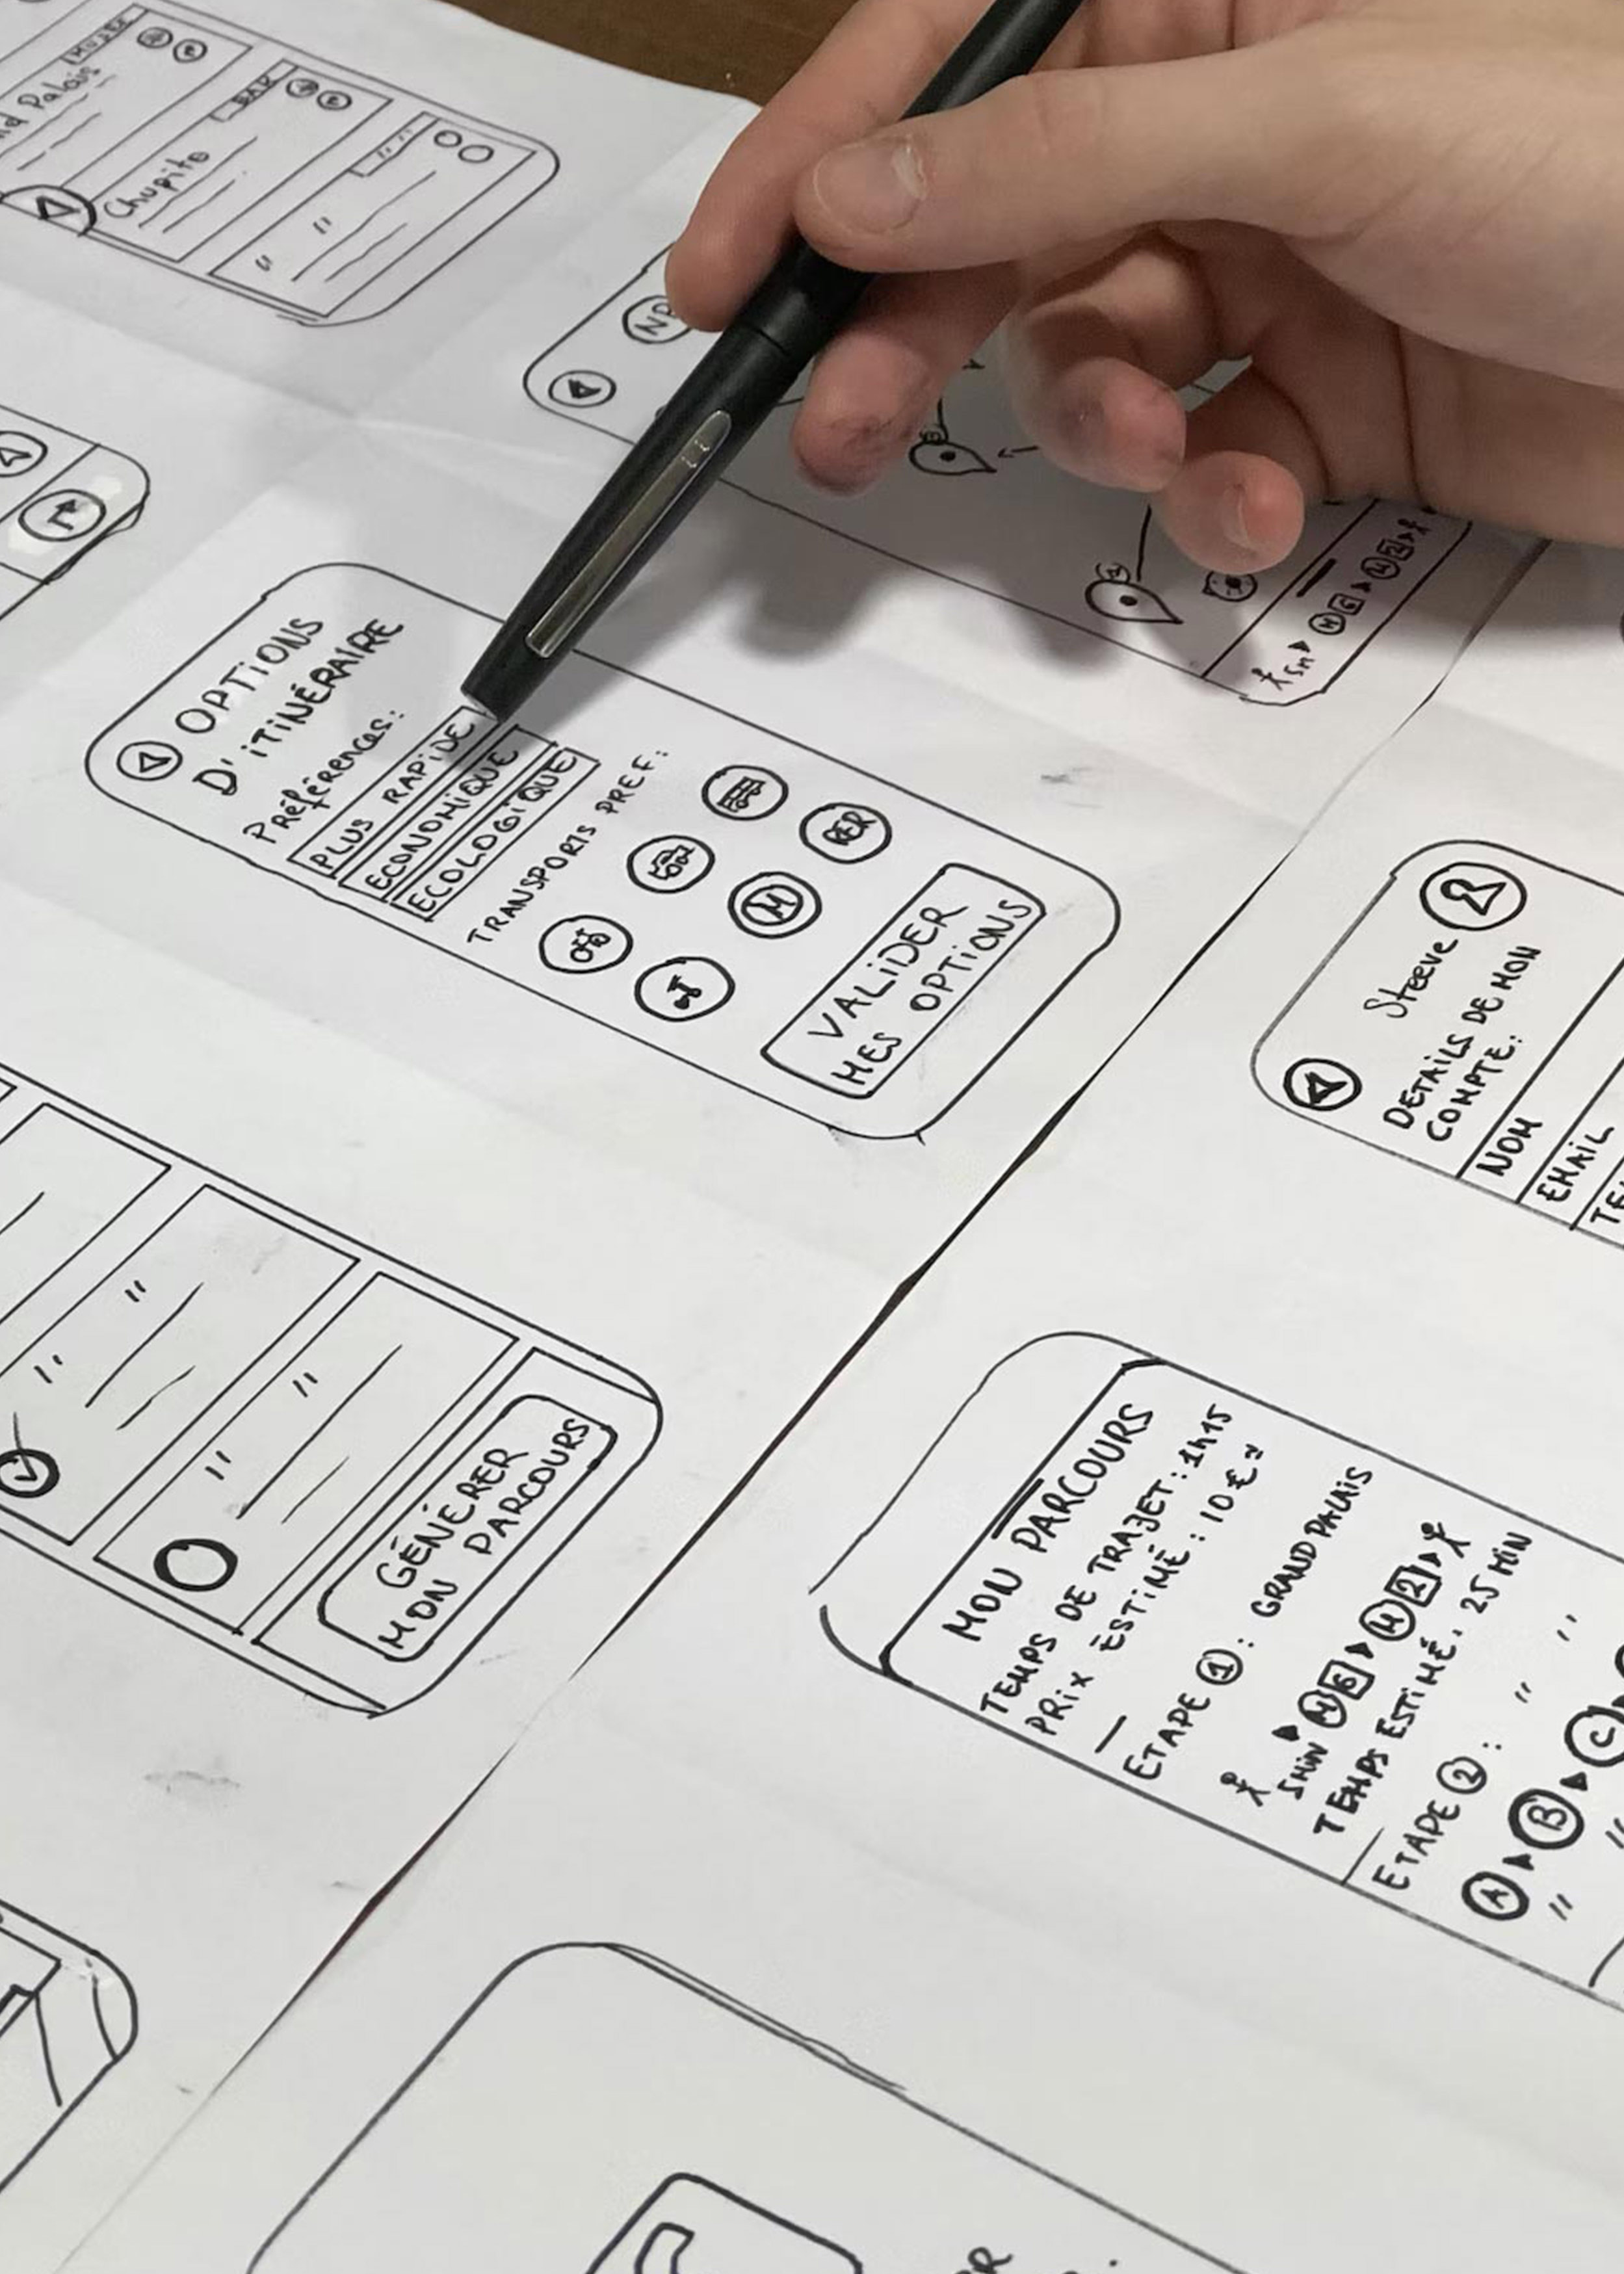 MUSÉE
Palais
BAR
Chupito
OPTIONS
D'ITINÉRAIRE
Préférences:
PLUS RAPIDE
ECONOMIQUE
ECOLOGIQUE
TRANSPORTS PREF:
M
RER
VALIDER
MES OPTIONS
5M M 6 M 2
Steeve
DETAILS DE MON
COMPTE:
NOM
EMAIL
GÉNÉRER
MON PARCOURS
MON PARCOURS
TEMPS DE TRAJET: 1h15
PRIX ÉSTIMÉ: 10€
ETAPE 1: GRAND PALAIS
5MIN M 6 M 2
TEMPS ESTIMÉ. 25 MIN
ETAPE 2: " "
A B C